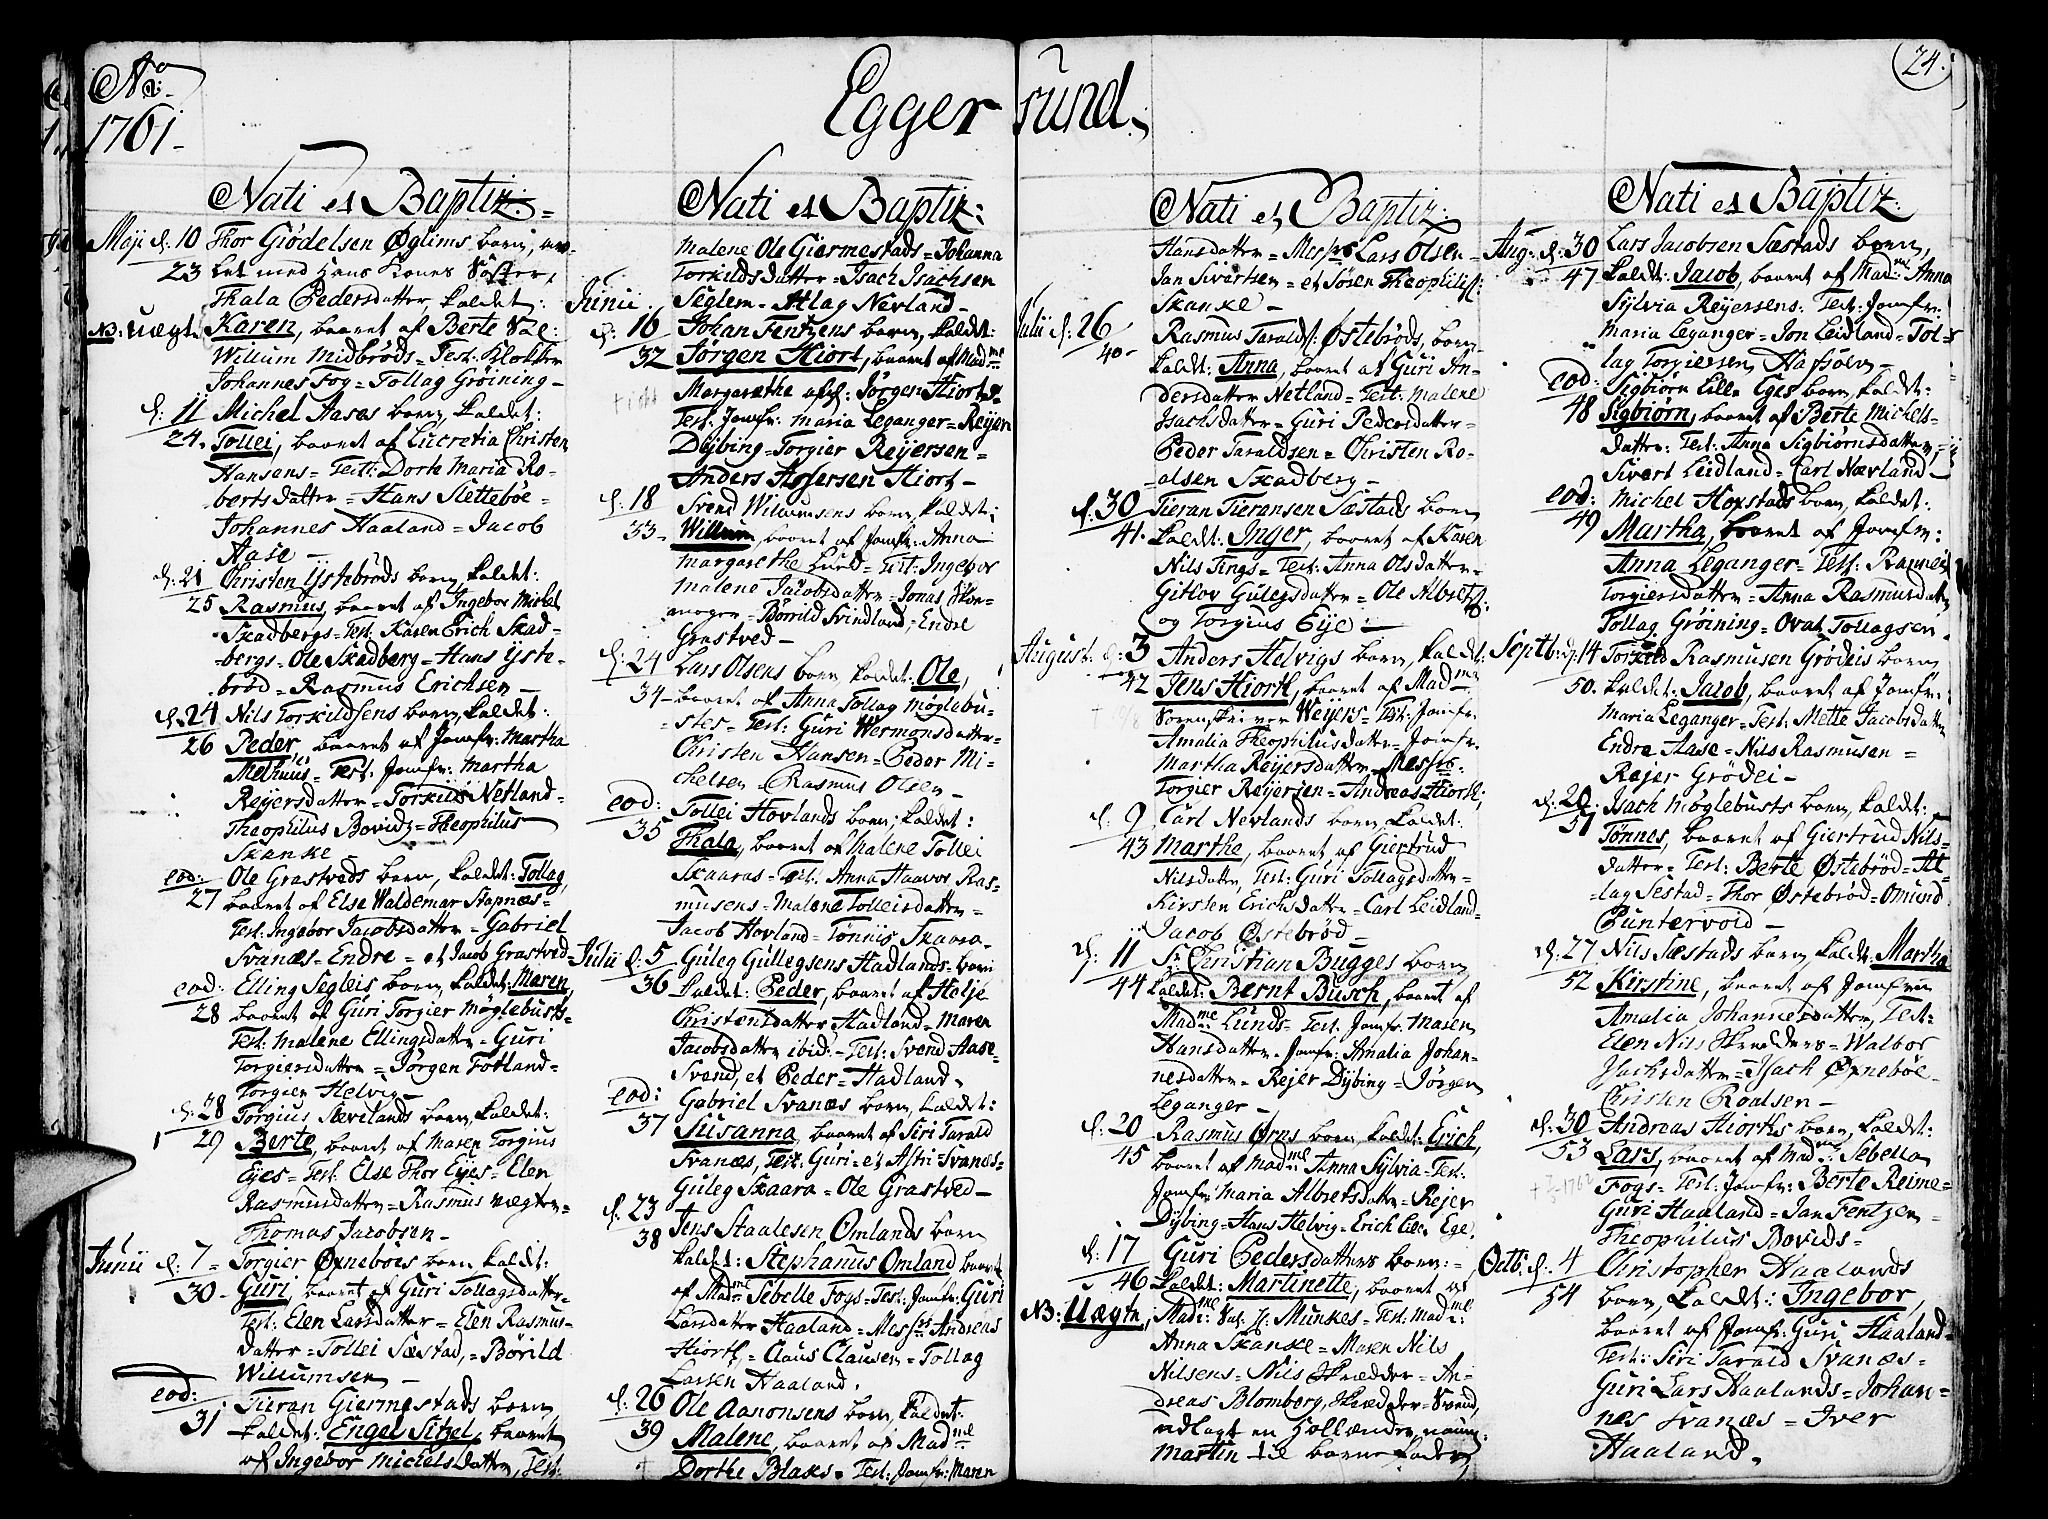 Ao:
1761.
Egger sund.
24.
Nati et Baptiz:
Maji d. 10 Thor Giödelsen Øglims barn,
23 let med Hans Kones Söster,
Thala Pedersdatter, kaldet:
NB: Uægte Karen, baaret af Berte Sal:
Willum Midbröds = Test: Klokker
Johannes Fog = Tollag Gröining -
d. 11 Michel Aases barn, kaldet:
24. Tollei, baaret af Lucretia Christen
Hansens = Test: Dorte Maria Ro-
bertsdatter = Hans Slettebøe =
Johannes Haaland = Jacob
Aase -
d: 21 Christen Ystebröds barn, kaldet:
25 Rasmus, baaret af Ingebor Michel
Skadbergs = Test: Karen Erich Skad-
bergs = Ole Skadberg = Hans Yste-
bröd = Rasmus Erichsen -
d. 24 Nils Torkildsens barn, kaldet:
26 Peder, baaret af Jomfr: Martha
Test: Jomfr: Martha
Reijersdatter = Torkild Netland =
Theophilus Bovidz = Theophilus
Skanke
eod: Ole Grastveds barn, kaldet: Tollag,
27 baaret af Else Waldemar Stapnæs =
Test: Ingebor Jacobsdatter = Gabriel
Svanæs = Endre = et Jacob Grastved
eod: Elling Segleis barn, kaldet: Maren,
28 baaret af Guri Torgier Møglebusts =
Test: Malene Ellingsdatter = Guri
Torgiersdatter = Jörgen Fotland =
Torgier Helvig -
d. 28 Torgius Sævelands barn, kaldet:
29 Berte, baaret af Maren Torgius
Eyes = Test: Else Thor Eyes = Elen
Rasmusdatter = Rasmus
Thomas Jacobsen -
Junii d. 7 = Torgier Øxneboes barn kaldet:
30 - Guri, baaret af Guri Tollagsdatter =
Test: Elen Larsdatter = Elen Rasmus-
datter = Tollei Sæstad, = Börild
Willumsen -
eod: Tieran Giermestads barn
31 kaldet: Engel Sitzel, baaret
af Ingebor Michelsdatter, Test:
Nati et Baptiz:
Malene Ole Giermestads = Johanna
Torkildsdatter = Isach Isachsen
Seglem = Atlag Nevland -
Junii.
d: 16 Johan Fentzens barn, kaldet:
32 Jörgen Hiort, baaret af Madme
Margarethe Jörgen Hiorts
Test: Jomfr: Maria Leganger = Reijer
Dÿbing = Torgier Reÿersen =
Anders Hiort -
d. 18 Svend Willumsens barn, kaldet:
33 - Willum, baaret af Jomfr: Anna
Margarethe Lund = Test: Ingebor
Malene Jacobsdatter = Jonas
= Börrild Svindland, = Endre
Grastved -
d. 24 Lars Olsens barn, kaldet: Ole,
34 - baaret af Anna Tollag Møglebu-
stes = Test: Guri Wermonsdatter =
Christen Hansen = Peder Mi-
chelsen = Rasmus Olsen -
eod: Tollei Hovlands barn, kaldet:
35 Thala, baaret af Malene Tollei
Skaaras = Test: Anna Haavor Ras-
musens = Malene Tolleisdatter =
Jacob Hovland = Tönniis Skaara -
Julii d. 5 Guleg Gullegsens Hadlands = barn
36 kaldet: Peder, baaret af Helje
Christensdatter Hadland = Maren
Jacobsdatter ibid: - Test: Svend Aase =
Svend, et Peder = Hadland.
eod: Gabriel Svanæs barn, kaldet:
37 Susanna, baaret af Siri Tarald
Svanæs, Test: Guri = et Astri = Svanæs =
Guleg Skaara = Ole Grastved -
d. 23 Jens Staalesen Omlands barn
38 kaldet: Stephanus Omland baaret
af Madme Sebelle Fogs = Test: Jomfr: Guri
Larsdatter Haaland = Messrs Andreas
Hiort = Claus Clausen = Tollag
Larsen Haaland.
d. 26 Ole Aanonsens barn, kaldet:
39 Malene, baaret af Madme
Dorthe Blaks = Test: Jomfr: Maren
Nati et Baptiz:
Hansdatter = Messrs Lars Olsen =
Jan Sivertsen = et Sören Theophilss:
Skanke -
Julii d. 26 Rasmus Taralds: Østebröds, barn
40 - kaldt: Anna, baaret af Guri An-
dersdatter Netland = Test: Malene
Isachsdatter = Guri Pedersdatter =
Peder Taraldsen = Christen Ro-
alsen Skadberg -
d. 30 Tieran Tieransen Sæstads barn
41. kaldt: Inger, baaret af Karen
Nils Tengs = Test: Anna Olsdatter =
Gitlov Gulegsdatter = Ole Albrets:
og Torgius Eije -
August. d. 3 Anders Helvigs barn, kaldt:
42 Jens Hiort, baaret af Madme
Sorenskriver Weyers = Test: Jomfr:
Amalia Theophilusdatter = Jomfr.
Martha Reijersdatter = Messrs:
Torgier Reijersen = Andreas Hiort,
d. 9 Carl Nevlands barn, kaldet:
43 Marthe, baaret af Giertrud
Nilsdatter, Test: Guri Tollagsdatter =
Kirsten Erichsdatter = Carl Leidland =
Jacob Østebröd =
d. 11 Sr Christian Bugges barn
44 kaldet: Bernt Busch, baaret af
Madme Lunds = Test: Jomfr: Maren
Hansdatter = Jomfr: Amalia Johan-
nesdatter = Rejer Dÿbing = Jörgen
Leganger -
d. 20 Rasmus Ørns barn, kaldt: Erich,
45 baaret af Madme Anna Sylvia = Test:
Jomfr: Maria Albretsdatter = Rejer
Dÿbing = Hans Helvig = Erich Ege,
d. 17 Guri Pedersdatters barn: =
46 kaldet: Martinette, baaret af
NB: Uægte, Madme Munkes = Test: Madme:
Anna Skanke = Maren Nils
Nilsens = Nils Skredder = An-
dreas Blomberg, Skredder = Svend,
udlagt en Hollænder, navn:
Martin til barne fader,
Nati et Baptiz:
Aug: d. 30 Lars Jacobsen Sæstads barn,
47 kaldt: Jacob, baaret af Madme Anna
Sylvia Reijersens: Test: Jomfr:
Maria Leganger = Jon Leidland = Tol-
lag Torgiersen
eod: Sigbiörn Elle Eges barn, kaldet:
48 Sigbiörn, baaret af Berte Michels-
datter = Test: Anna Sigbiörnsdatter =
Sivert Leidland = Carl Nævland -
eod: Michel Hoxstads barn, kaldet:
49 Martha, baaret af Jomfr:
Anna Leganger = Test: Rannei
Torgiersdatter = Anna Rasmusdatter
Tollag Gröining = Ovat Tollagsen -
Septb: d. 14 Torkild Rasmusen Grödeis barn
50. kaldet: Jacob, baaret af Jomfr:
Maria Leganger = Test: Mette Jacobsdatter
Endre Aase = Nils Rasmusen =
Rejer Grödei -
d. 20 Isach Møglebusts barn, kaldet:
51 Tönnes, baaret af Giertrud Nils-
datter = Test: Berte Østebröd = At-
lag Sestad = Thor Østebröd = Omund
Puntervold -
d. 27 Nils Sæstads barn, kaldt: Martha
52 Kirstine, baaret af Jomfru
Amalia Johannesdatter, Test:
Elen Nils Skredders = Walbor
Isachsdatter = Isach Øxneböe =
Christen Roalsen -
d. 30 Andreas Hiorths barn, kaldet:
53 Lars, baaret af Madme Sebella
Fogs = Test: Jomfr: Berte Reime =
Guri Haaland = Jan Fentzen =
Theophilus Bovids =
Octb: d. 4 Christopher Haalands
54 barn, kaldet: Ingebor,
baaret af Jomfr: Guri Haaland =
Test: Siri Tarald Svanæs =
Guri Lars Haalands = Johan-
nes Svanæs = Iver
Haaland.